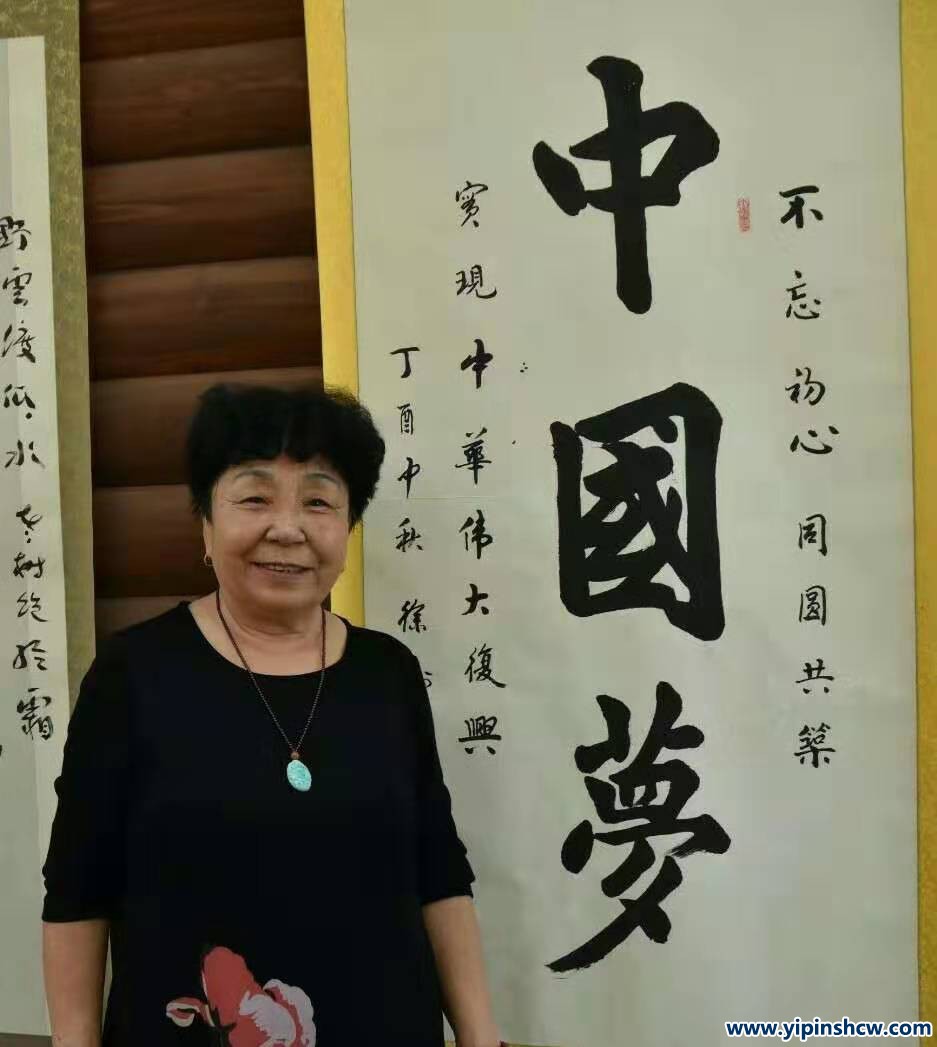 不忘初心同圆共築
中國夢
實現中華伟大復興
丁酉中秋徐
野雲渡低水
老樹絶於霜
www.yipinshcw.com